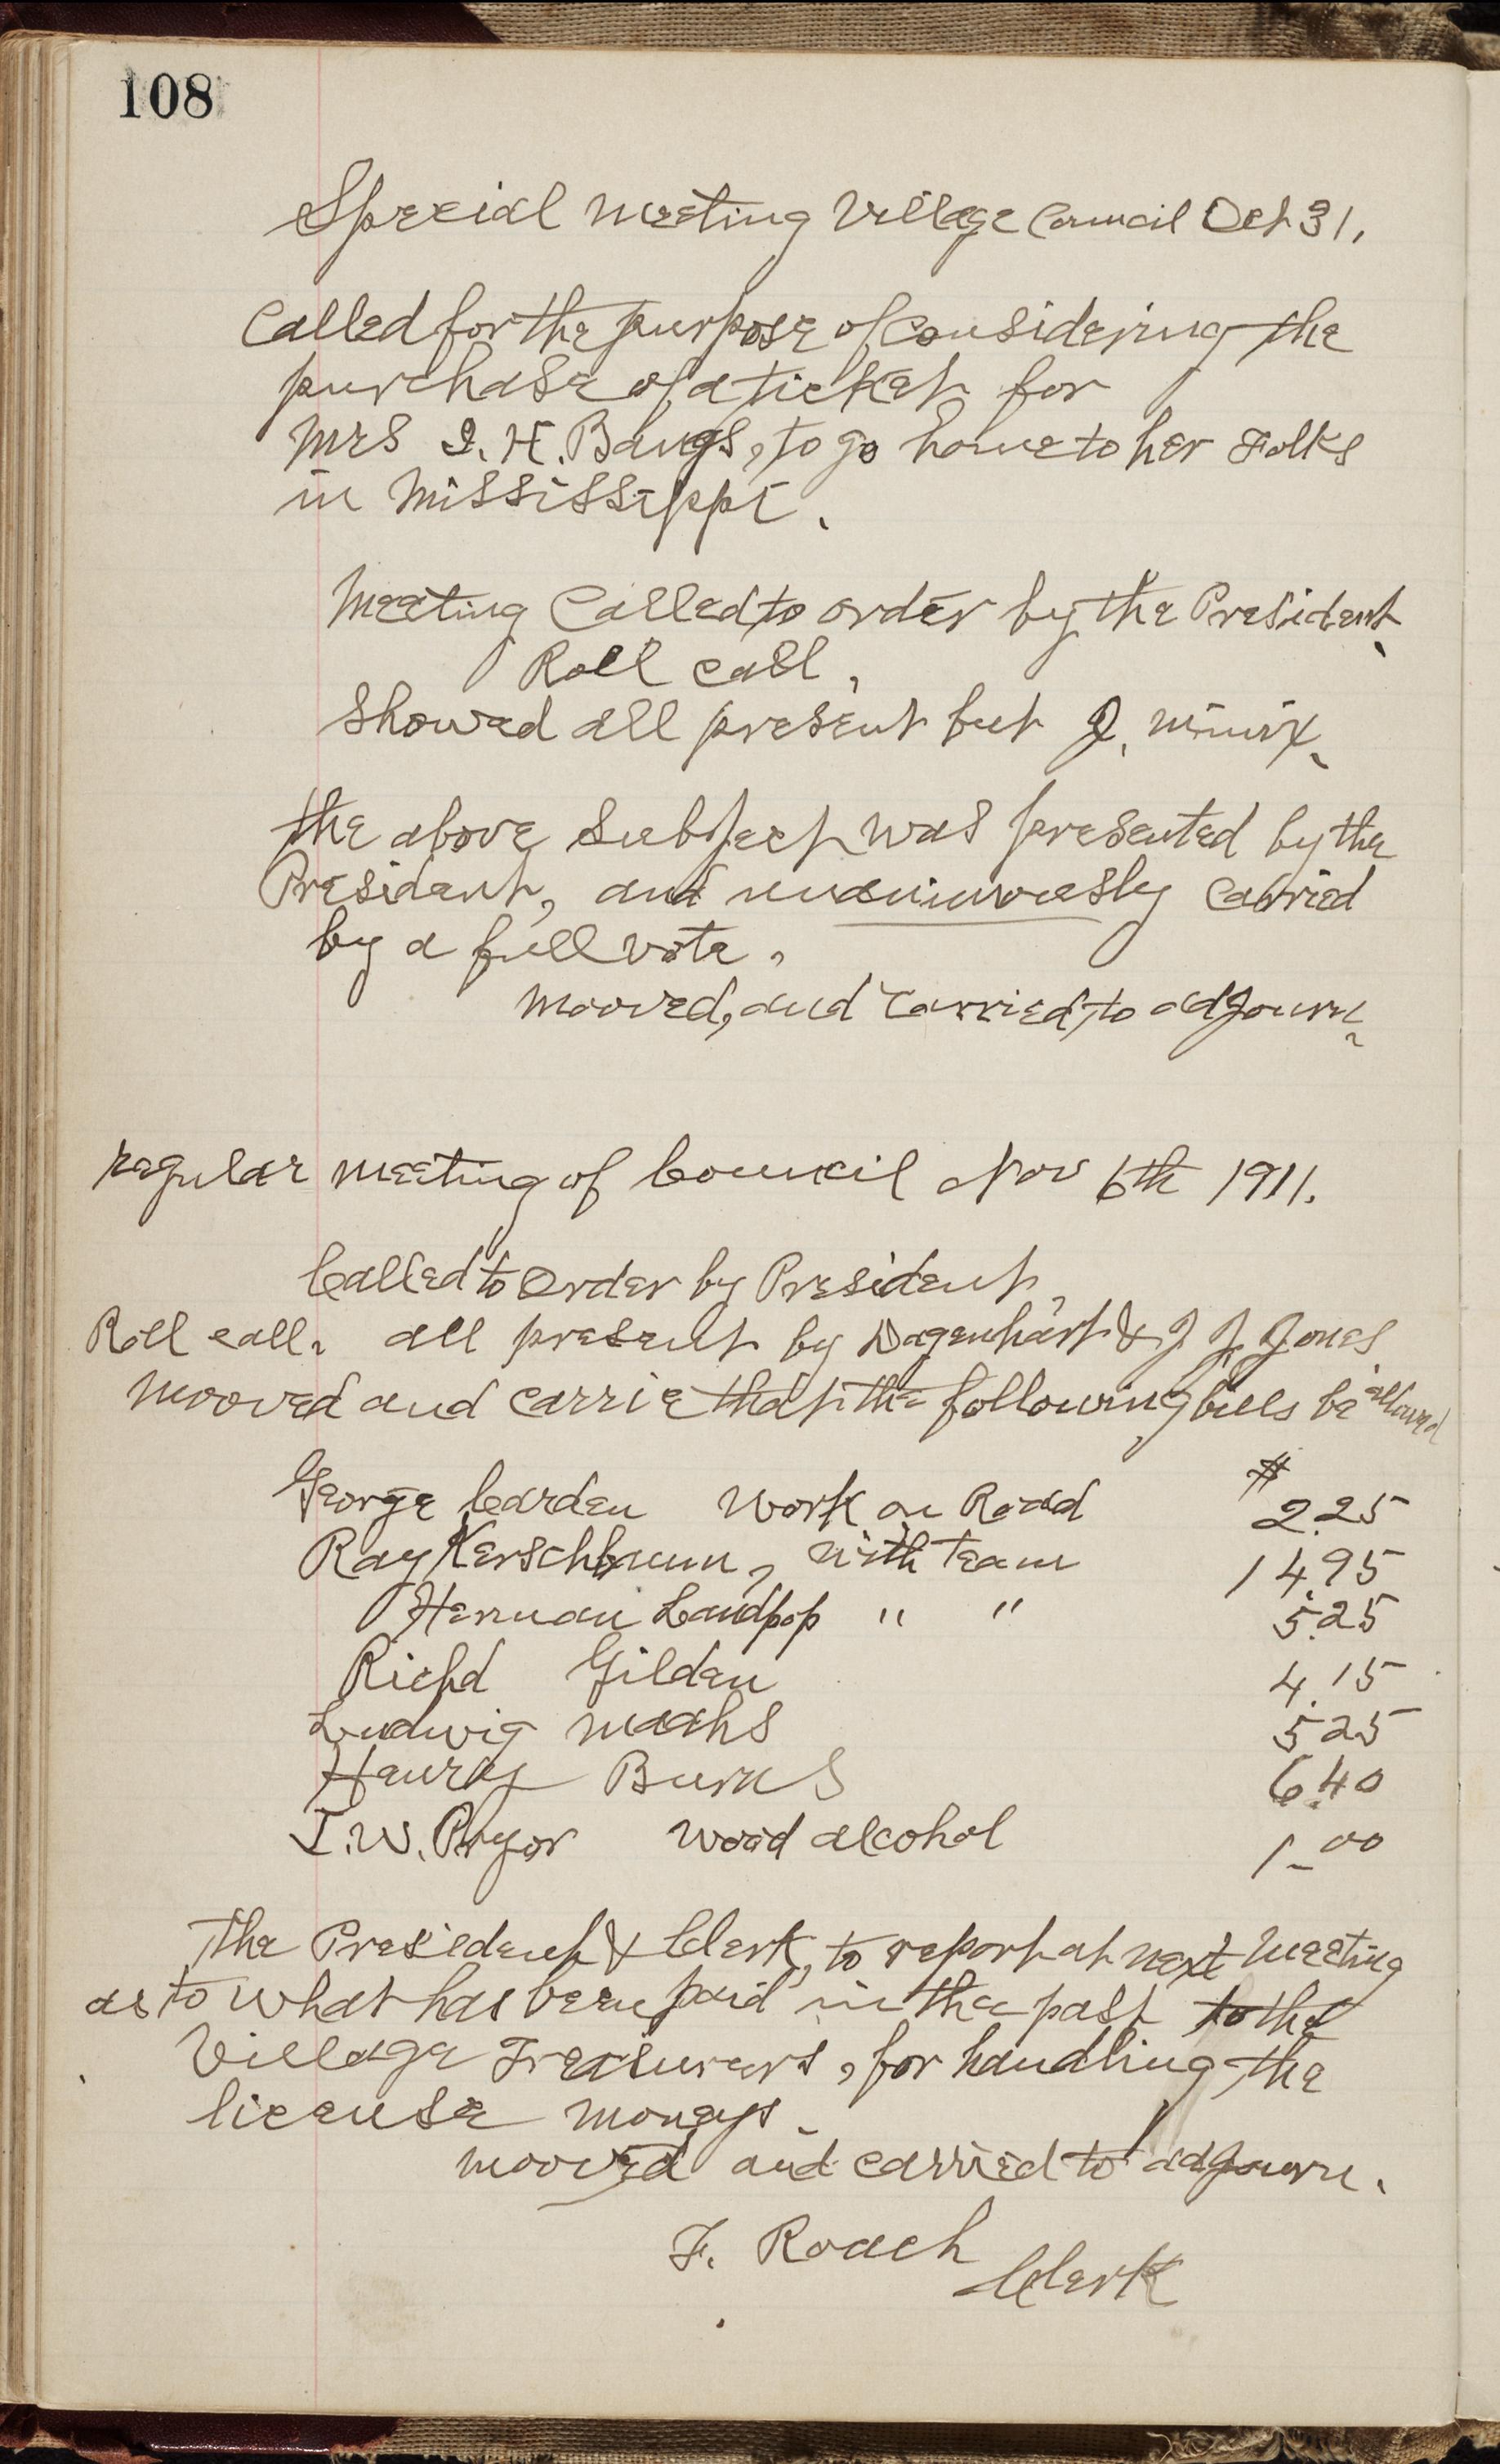 108
Special meeting Village Council Oct 31.
Called for the purpose of considering the
purchase of a ticket for
Mrs I. H. Bangs, to go home to her Folks
in Mississippi.
Meeting Called to order by the President.
Roll call,
Showed all present but J. Minix.
the above subject was presented by the
President, and unanimously carried
by a full vote.
Mooved, and carried, to adjourn.
regular meeting of Council Nov 6th 1911.
Called to Order by President,
Roll call. all present by Dagenhart & J J. Jones
Mooved and carrie that the following bills be allowed
George Carden Work on Road $ 2.25
Ray Kerschbaum, with Team 14.95
Herman Landpop " " 5.25
Richd Gilden 4.15
Ludwig Maahs 5 25
Henry Burns 6.40
I. W. Pryor Wood alcohol 1-00
The President & Clerk, to report at next Meeting
as to what has been paid in the past to the
Village Treasurers, for handling the
license moneys.
mooved and carried to adjourn.
F. Roach
Clerk